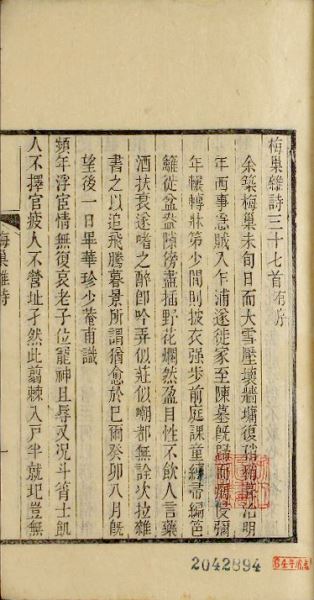 梅巢雜詩三十七首有序
余築梅巢未旬日而大雪壓壞牆墉復
葺治明
年西事急賊入乍浦遂徙家至陳墓旣歸而病慢彌
年輾轉牀第少間則披衣强步前庭課童
編笆
籬從盆盎隙傍盡插野花爛然盈目性不飲人言藥
酒扶衰遂嗜之醉卽吟弄似莊似嘲都無詮次拉雜
書之以追飛騰暮景所謂猶愈於已爾癸卯八月旣
望後一日畢華珍少菴甫識
頻年浮宦情無復哀老子位寵神且辱又况斗筲士飢
人不擇官疲人不營址孑然此翦棘入戶半就圮豈無
梅巢雜詩
2042894